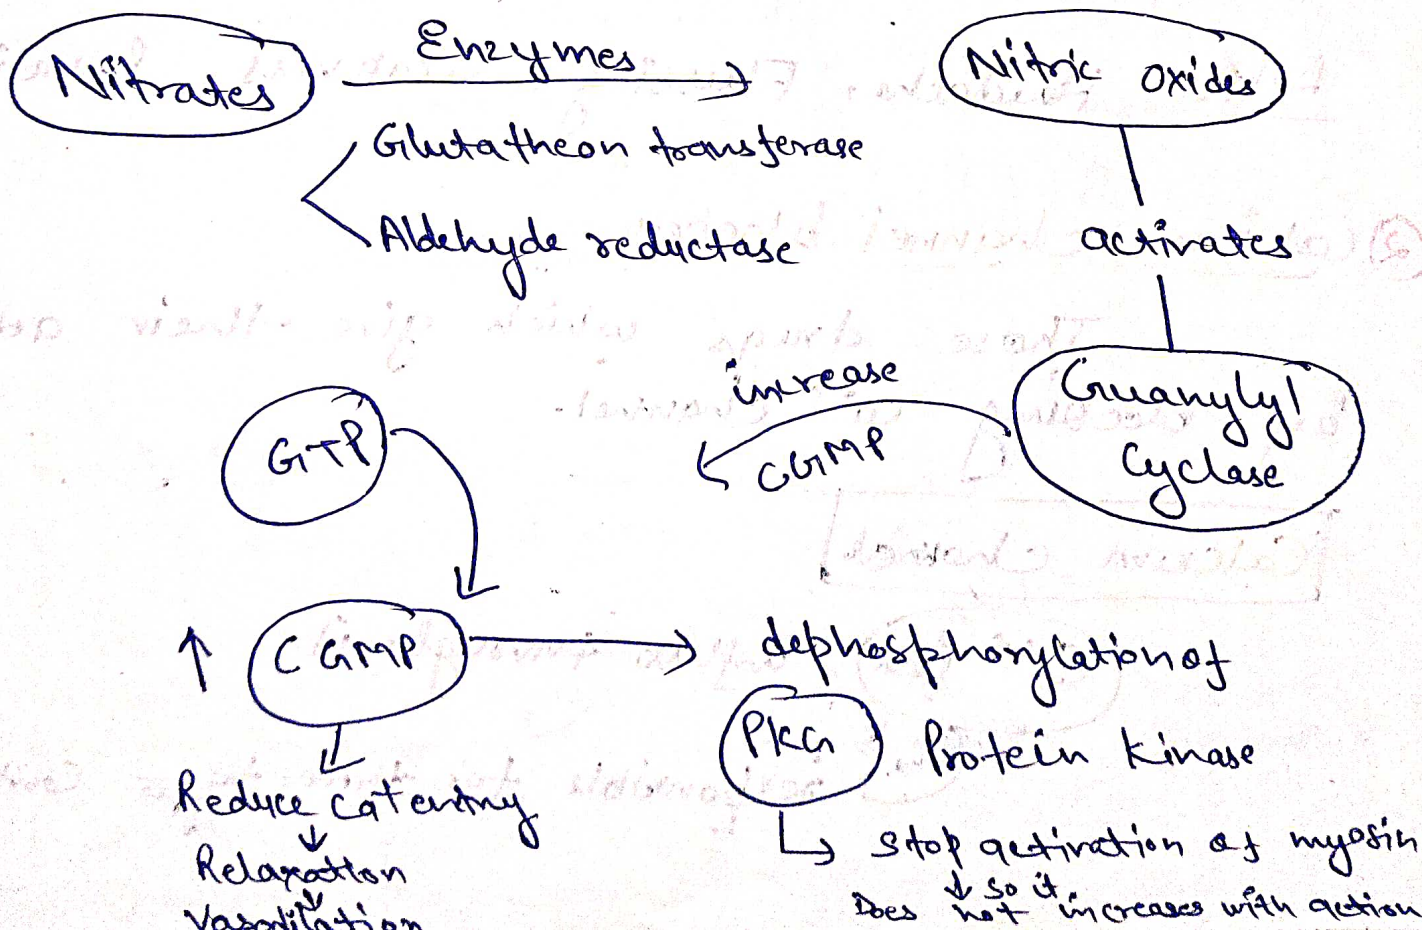 Nitrates
Enzymes
Nitric oxides
Glutatheon transferase
Aldehyde reductase
activates
Guanylyl
Cyclase
increase
CGMP
GTP
↑ CGMP
dephosphorylation of
PKG Protein Kinase
Reduce cat entry
Relaxation
Vasodilation
Stop activation of myosin
so it
Does not increases with action